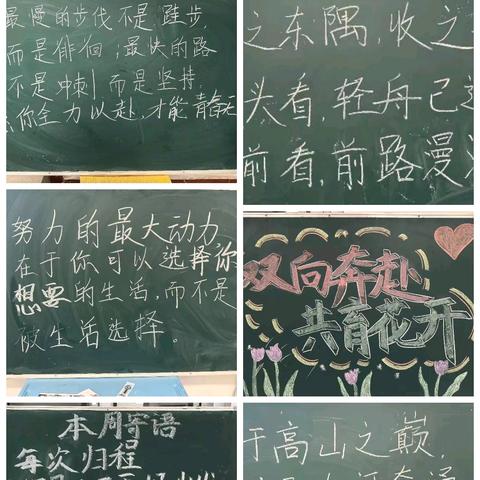 最慢的步伐不是跬步,
而是徘徊;最快的路
不是冲刺 而是坚持
你全力以赴,才能青春无
之东隅,收之
头看,轻舟已
前看,前路漫
努力的最大动力,
在于你可以选择你
想要的生活,而不是
被生活选择。
双向奔赴
共育花开
本周寄语
每次归程
于高山之巅,